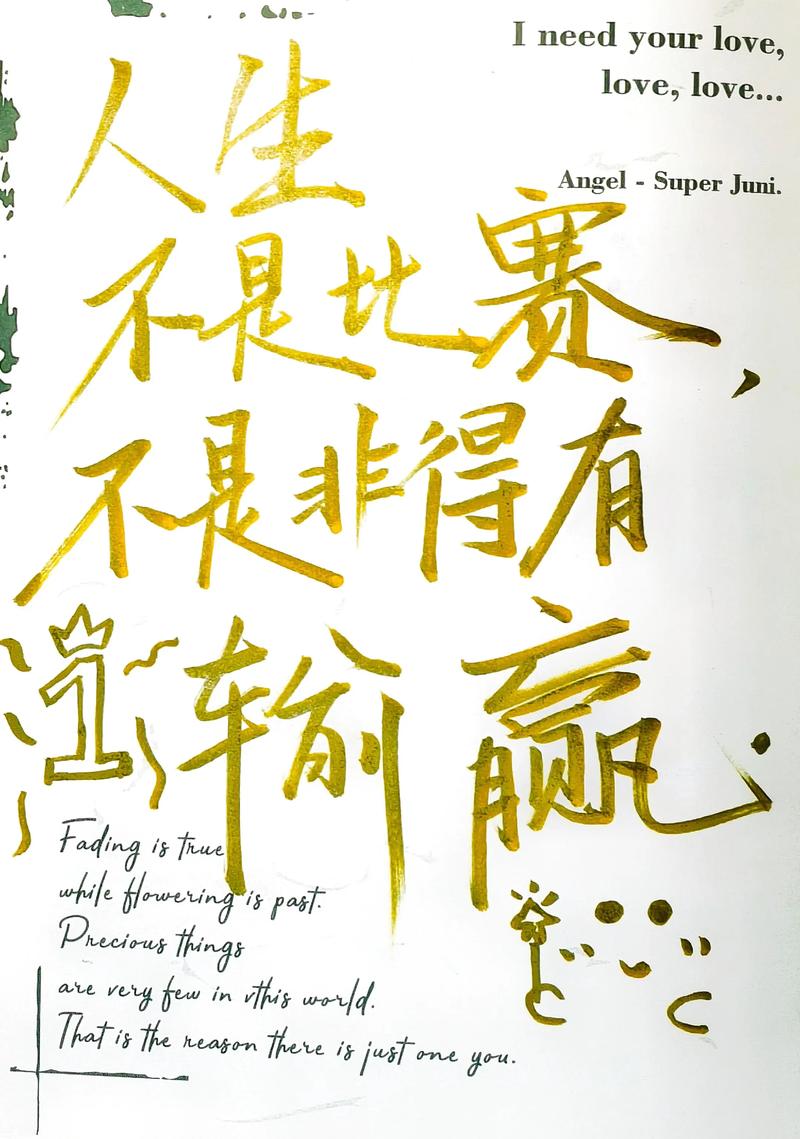 I need your love,
love, love...
Angel - Super Juni.
人生
不是比赛,
不是非得有
1 输赢.
Fading is true
while flowering is past.
Precious things
are very few in vthis world.
That is the reason there is just one you.